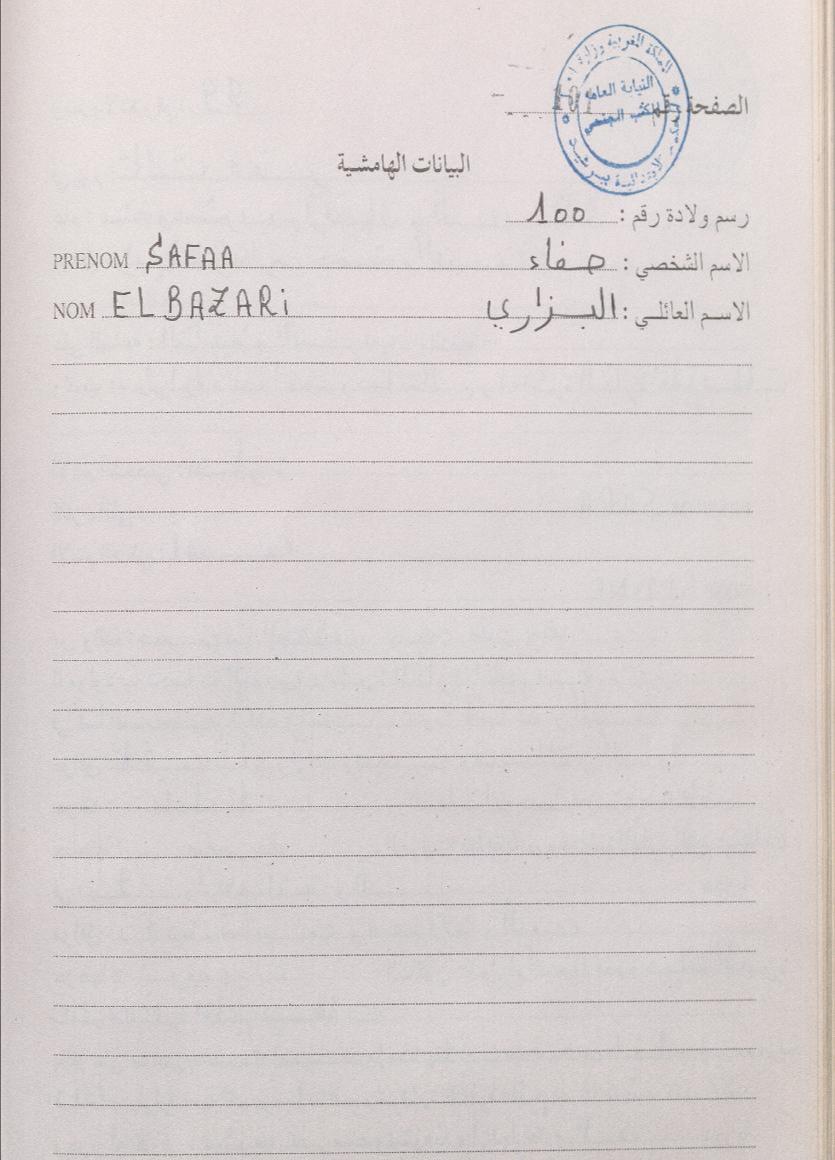 المملكة المغربية وزارة
النيابة العامة
الصفحة رقم 101
البيانات الهامشية
رسم ولادة رقم : 100
الاسم الشخصي : صفاء PRENOM SAFAA
الاسم العائلي : البزاري NOM EL BAZARi